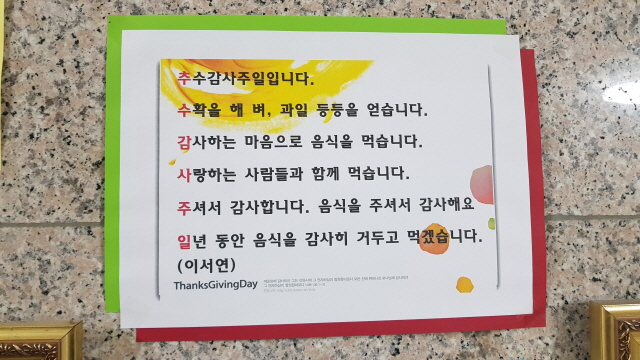 추수감사주일입니다.
수확을 해 벼, 과일 등등을 얻습니다.
감사하는 마음으로 음식을 먹습니다.
사랑하는 사람들과 함께 먹습니다.
주셔서 감사합니다. 음식을 주셔서 감사해요
일년 동안 음식을 감사히 거두고 먹겠습니다.
(이서연)
ThanksGivingDay